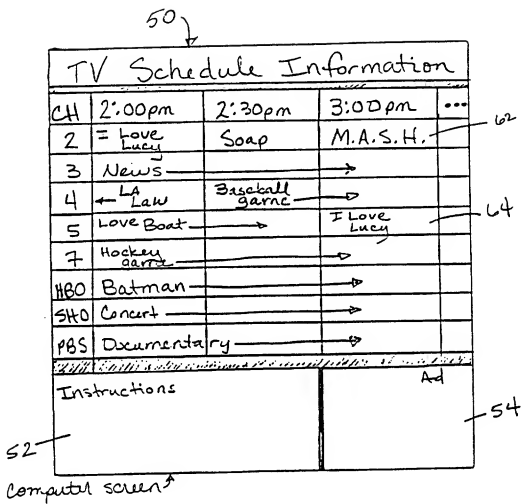 50
TV Schedule Information
CH 2:00pm 2:30pm 3:00pm ...
2 = Love Lucy Soap M.A.S.H. 62
3 News
4 LA Law Baseball game
5 Love Boat I Love Lucy 64
7 Hockey game
HBO Batman
SHO Concert
PBS Documentary
Instructions Ad
52 54
Computer screen